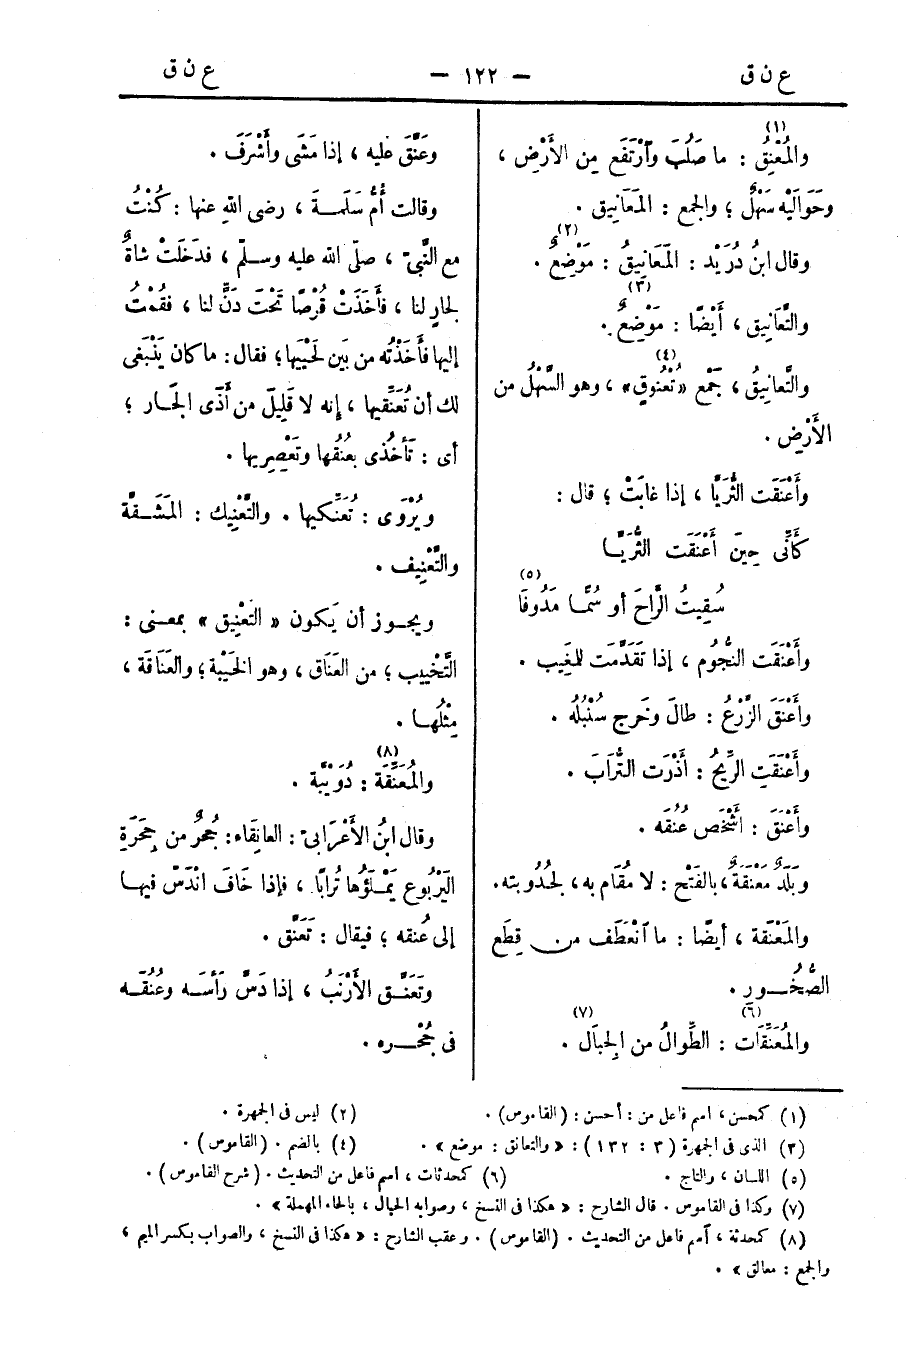 ع ن ق — ١٢٢ — ع ن ق
(١)
والمُعْنِقُ : ما صَلُبَ وآرْتَفَع مِن الأَرْضِ ،
وحَوَالَيْه سَهْلٌ ؛ والجمع : المَعَانِيق .
(٢)
وقال ابنُ دُرَيْد : المَعَانِيقُ : مَوْضِعٌ .
(٣)
والتَّعَانِيق ، أَيْضًا : مَوْضِعٌ .
(٤)
والتَّعانِيقُ ، جَمْع «تُعْنُوقٍ» ، وهو السَّهْلُ من
الأَرْضِ .
وأَعْنَقَت الثُّرَيَّا ، إذا غابَتْ ؛ قال :
كَأَنِّى حِينَ أَعْنَقَت الثُّرَيَّـا
(٥)
سُقِيتُ الرَّاحَ أو سُمًّـا مَدُوفَا
وأَعْنَقَت النُّجُوم ، إذا تَقَدَّمَت للمَغِيب .
وأَعْنَقَ الزَّرْعُ : طالَ وخَرج سُنْبُلُه .
وأَعْنَقَتِ الرِّيحُ : أَذْرَت التُّرابَ .
وأَعْنَق : أَشْخَص عُنُقَه .
وبَلَدٌ مَعْنَقَةٌ ، بالفَتْح : لا مُقَام به ، لجُدُوبته .
والمَعْنَقة ، أيضًا : ما آنْعَطَف من قِطَع
الصُّخُـور .
(٦) (٧)
والمُعَنِّقَات : الطِّوالُ من الجِبَال .
وعَنَّق عليه ، إذا مَشَى وأَشْرَفَ .
وقالت أُمُّ سَلَمـة ، رضى اللهُ عنها : كُنْتُ
مع النَّبِىّ ، صلّى اللهُ عليه وسلّم ، فدَخَلَتْ شاةٌ
لجارٍ لنا ، فأَخَذَتْ قُرْصًا تَحْتَ دَنٍّ لنا ، فقُمْتُ
إليها فأَخَذْتُه من بَيْن لَحْيَيْها ؛ فقال : ما كان يَنْبَغِى
لك أن تُعَنِّقِيها ، إنه لا قَلِيلَ من أَذَى الجَـار ؛
أى : تَأْخُذى بعُنُقها وتَعْصِرِيها .
ويُرْوَى : تُعَنِّكيها . والتَّعْنِيك : المَشَـقَّة
والتَّعْنِيف .
ويجـوز أن يَكون « التَّعْنِيق » بمعنى :
التَّخْيِيب ؛ من العَنَاق ، وهو الخَيْبة ؛ والعَنَاقَة ،
مِثْلُهـا .
(٨)
والمُعَنِّقَة : دُوَيْبَّة .
وقال ابنُ الأَعْرَابىّ : العانِقَاء : جُحرٌ من جِحَرَةِ
اليَرْبُوع يَمْـلَؤُها تُرابًا ، فإذا خَافَ انْدَسّ فيهـا
إلى عُنقه ؛ فيقال : تَعَنَّق .
وتَعَنَّـق الأَرْنَبُ ، إذا دَسَّ رَأْسَـه وعُنُقَـه
فى جُحْـره .
(١) كمحسن ، اسم فاعل من : أحسن : (القاموس) . (٢) ليس فى الجمهرة .
(٣) الذى فى الجمهرة (٣ : ١٣٢) : « والتعانق : موضع » . (٤) بالضم . (القاموس) .
(٥) اللسان ، والتاج . (٦) كمحدثات ، اسم فاعل من التحديث . (شرح القاموس) .
(٧) وكذا فى القاموس . قال الشارح : « هكذا فى النسخ ، وصوابه الحبال ، بالحاء المهملة » .
(٨) كمحدثة ، اسم فاعل من التحديث . (القاموس) . وعقب الشارح : « هكذا فى النسخ ، والصواب بكسر الميم ،
والجمع : معالق » .